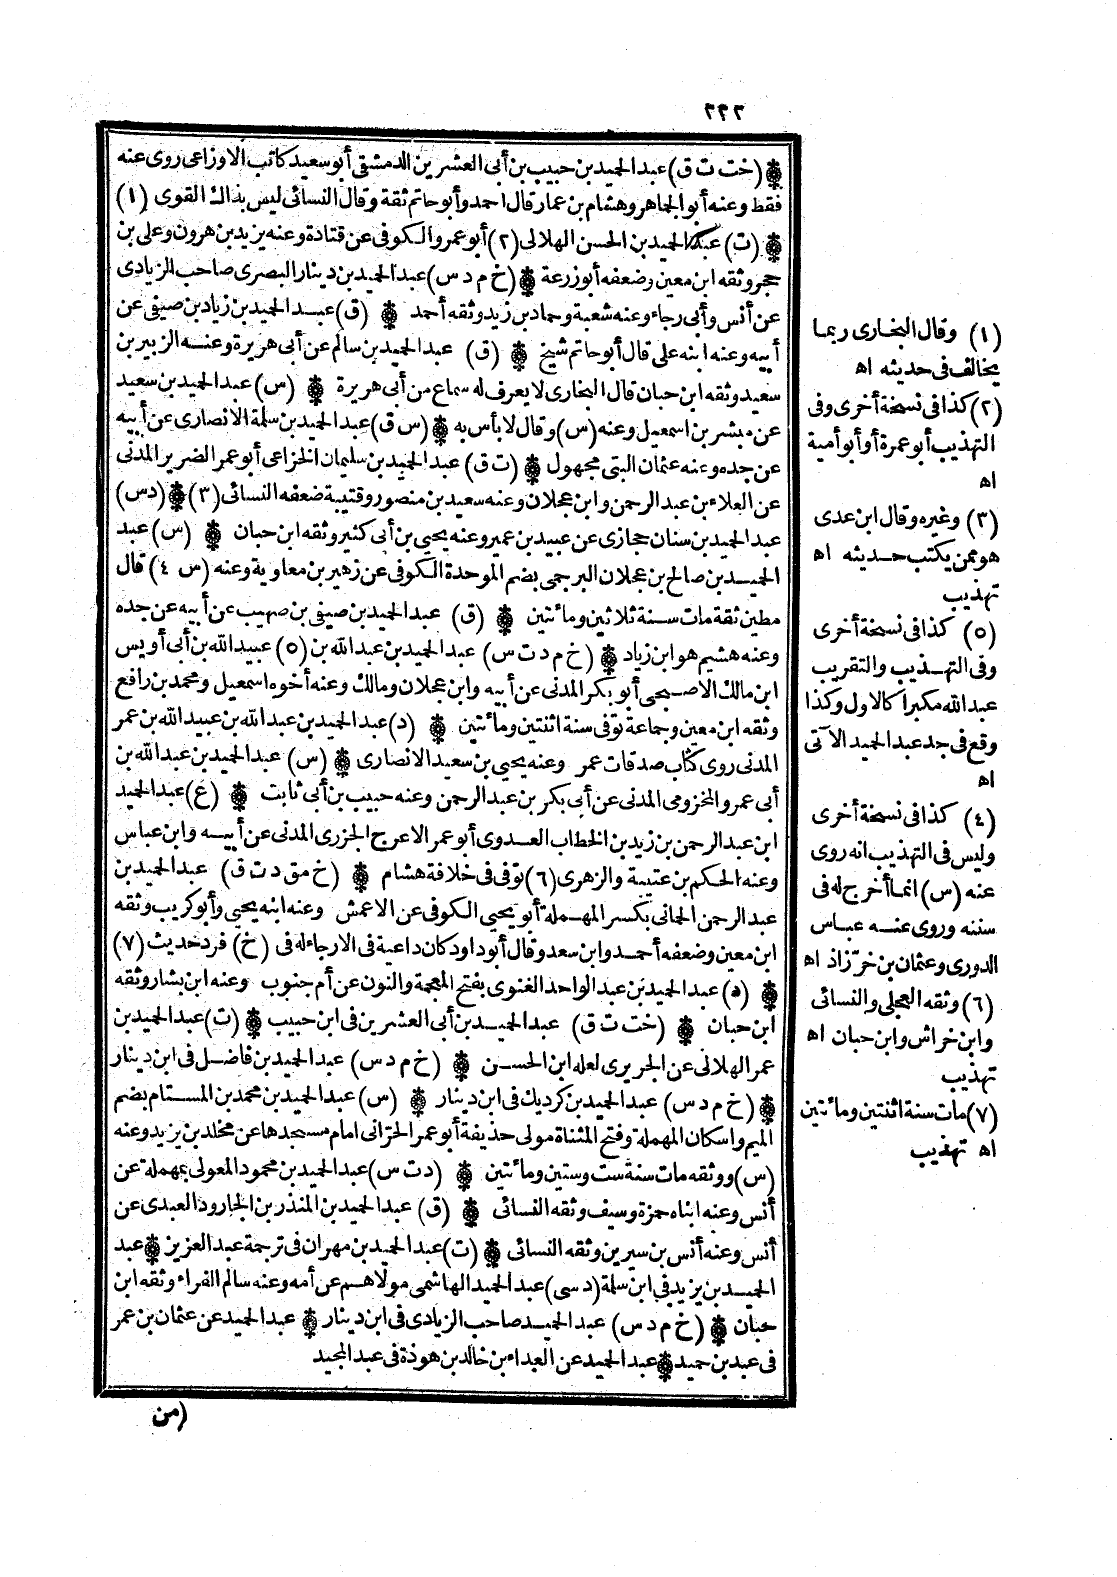 ٢٢٢
(خت ت ق) عبد الحميد بن حبيب بن أبي العشرين الدمشقي أبو سعيد كاتب الاوزاعي روى عنه
فقط وعنه أبو الجاهر وهشام بن عمار قال احمد وأبو حاتم ثقة وقال النسائي ليس بذاك القوى (١)
(ت) عبد الحميد بن الحسن الهلالى (٢) أبو عمرو الكوفى عن قتادة وعنه يزيد بن هرون وعلى بن
حجر وثقه ابن معين وضعفه أبو زرعة (خ م د س) عبد الحميد بن دينار البصرى صاحب الزيادى
عن أنس وأبى رجاء وعنه شعبة وحماد بن زيد وثقه أحمد (ق) عبد الحميد بن زياد بن صيفى عن
أبيه وعنه ابنه على قال أبو حاتم شيخ (ق) عبد الحميد بن سالم عن أبى هريرة وعنه الزبير بن
سعيد وثقه ابن حبان قال البخارى لا يعرف له سماع من أبى هريرة (س) عبد الحميد بن سعيد
عن مبشر بن اسمعيل وعنه (س) وقال لا بأس به (س ق) عبد الحميد بن سلمة الانصارى عن أبيه
عن جده وعنه عثمان البتى مجهول (ت ق) عبد الحميد بن سليمان الخزاعى أبو عمر الضرير المدنى
عن العلاء بن عبد الرحمن وابن عجلان وعنه سعيد بن منصور وقتيبة ضعفه النسائى (٣) (د س)
عبد الحميد بن سنان حجازى عن عبيد بن عمير وعنه يحيى بن أبى كثير وثقه ابن حبان (س) عبد
الحميد بن صالح بن عجلان البرجمى بضم الموحدة الكوفى عن زهير بن معاوية وعنه (س ٤) قال
مطين ثقة مات سنة ثلاثين ومائتين (ق) عبد الحميد بن صيفى بن صهيب عن أبيه عن جده
وعنه هشيم هو ابن زياد (خ م د ت س) عبد الحميد بن عبد الله بن (٥) عبيد الله بن أبى أويس
ابن مالك الاصبحى أبو بكر المدنى عن أبيه وابن عجلان ومالك وعنه أخوه اسمعيل ومحمد بن رافع
وثقه ابن معين وجماعة توفى سنة اثنتين ومائتين (د) عبد الحميد بن عبد الله بن عبيد الله بن عمر
المدنى روى كتاب صدقات عمر وعنه يحيى بن سعيد الانصارى (س) عبد الحميد بن عبد الله بن
أبى عمرو المخزومى المدنى عن أبى بكر بن عبد الرحمن وعنه حبيب بن أبى ثابت (ع) عبد الحميد
ابن عبد الرحمن بن زيد بن الخطاب العدوى أبو عمر الاعرج الجزرى المدنى عن أبيه وابن عباس
وعنه الحكم بن عتيبة والزهرى (٦) توفى فى خلافة هشام (خ مق د ت ق) عبد الحميد بن
عبد الرحمن الحمانى بكسر المهملة أبو يحيى الكوفى عن الاعمش وعنه ابنه يحيى وأبو كريب وثقه
ابن معين وضعفه أحمد وابن سعد وقال أبو داود كان داعية فى الارجاء له فى (خ) فرد حديث (٧)
(د) عبد الحميد بن عبد الواحد الغنوى بفتح المعجمة والنون عن أم جنوب وعنه ابن بشار وثقه
ابن حبان (خت ت ق) عبد الحميد بن أبى العشرين فى ابن حبيب (ت) عبد الحميد بن
عمر الهلالى عن الجريرى لعله ابن الحسن (خ م د س) عبد الحميد بن فاضل فى ابن دينار
(خ م د س) عبد الحميد بن كرديك فى ابن دينار (س) عبد الحميد بن محمد بن المستام بضم
الميم واسكان المهملة وفتح المثناة مولى حذيفة أبو عمر الحرانى امام مسجدها عن مخلد بن يزيد وعنه
(س) ووثقه مات سنة ست وستين ومائتين (د ت س) عبد الحميد بن محمود المعولى بمهملة عن
أنس وعنه ابناه حمزة وسيف وثقه النسائى (ق) عبد الحميد بن المنذر بن الجارود العبدى عن
أنس وعنه أنس بن سيرين وثقه النسائى (ت) عبد الحميد بن مهران فى ترجمة عبد العزيز عبد
الحميد بن يزيد فى ابن سلمة (د سى) عبد الحميد الهاشمى مولاهم عن أمه وعنه سالم الفراء وثقه ابن
حبان (خ م د س) عبد الحميد صاحب الزيادى فى ابن دينار عبد الحميد عن عثمان بن عمر
فى عبد بن حميد عبد الحميد عن العداء بن خالد بن هوذة فى عبد المجيد
(من
(١) وقال البخارى ربما
يخالف فى حديثه اه
(٢) كذا فى نسخة أخرى وفى
التهذيب أبو عمرة أو أبو أمية
اه
(٣) وغيره وقال ابن عدى
هو ممن يكتب حديثه اه
تهذيب
(٥) كذا فى نسخة أخرى
وفى التهذيب والتقريب
عبد الله مكبرا كالاول وكذا
وقع فى جد عبد الحميد الآتى
اه
(٤) كذا فى نسخة أخرى
وليس فى التهذيب انه روى
عنه (س) انما أخرج له فى
سننه وروى عنه عباس
الدورى وعثمان بن خرّزاذ اه
(٦) وثقه العجلى والنسائى
وابن خراش وابن حبان اه
تهذيب
(٧) مات سنة اثنتين ومائتين
اه تهذيب